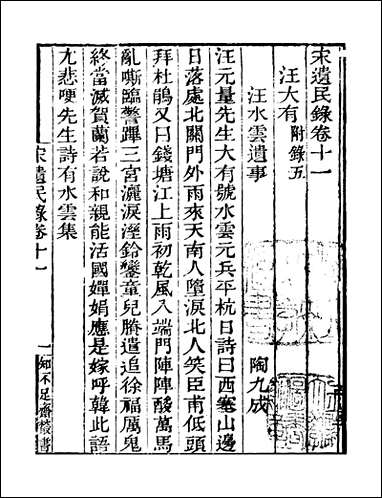 宋遺民錄卷十一
汪大有 附錄五
汪水雲遺事 陶九成
汪元量先生大有號水雲元兵平杭日詩曰西塞山邊
日落處北關門外雨來天南人墮淚北人笑臣甫低頭
拜杜鵑又曰錢塘江上雨初乾風入端門陣陣酸萬馬
亂嘶臨警蹕三宮灑淚溼鈴鑾童兒賸遣追徐福厲鬼
終當滅賀蘭若說和親能活國嬋娟應是嫁呼韓此語
尤悲哽先生詩有水雲集
宋遺民錄卷十一 一 知不足齋叢書